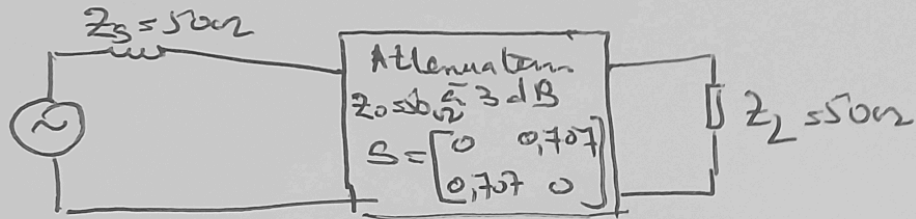 Zs = 50Ω
Attenuateur
Z0=50Ω à 3 dB
S = [0 0,707
0,707 0]
~
ZL = 50Ω